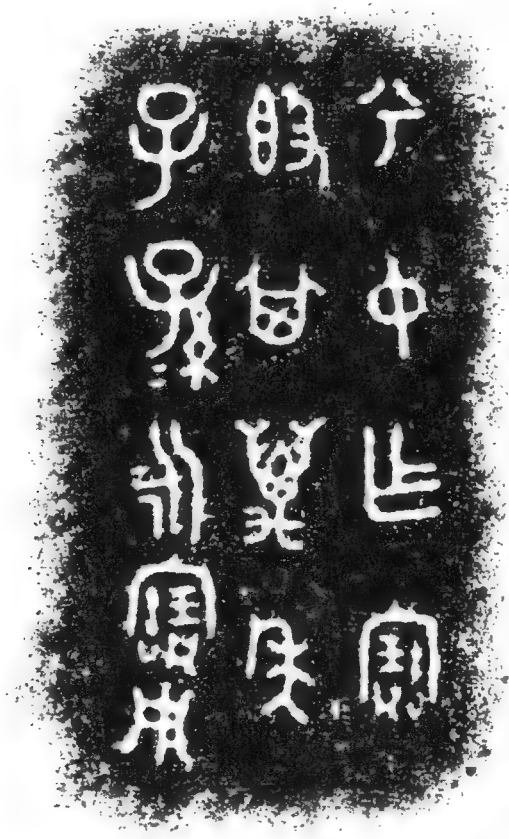 兮中乍寶
𣪘其萬年
子孫永寶用